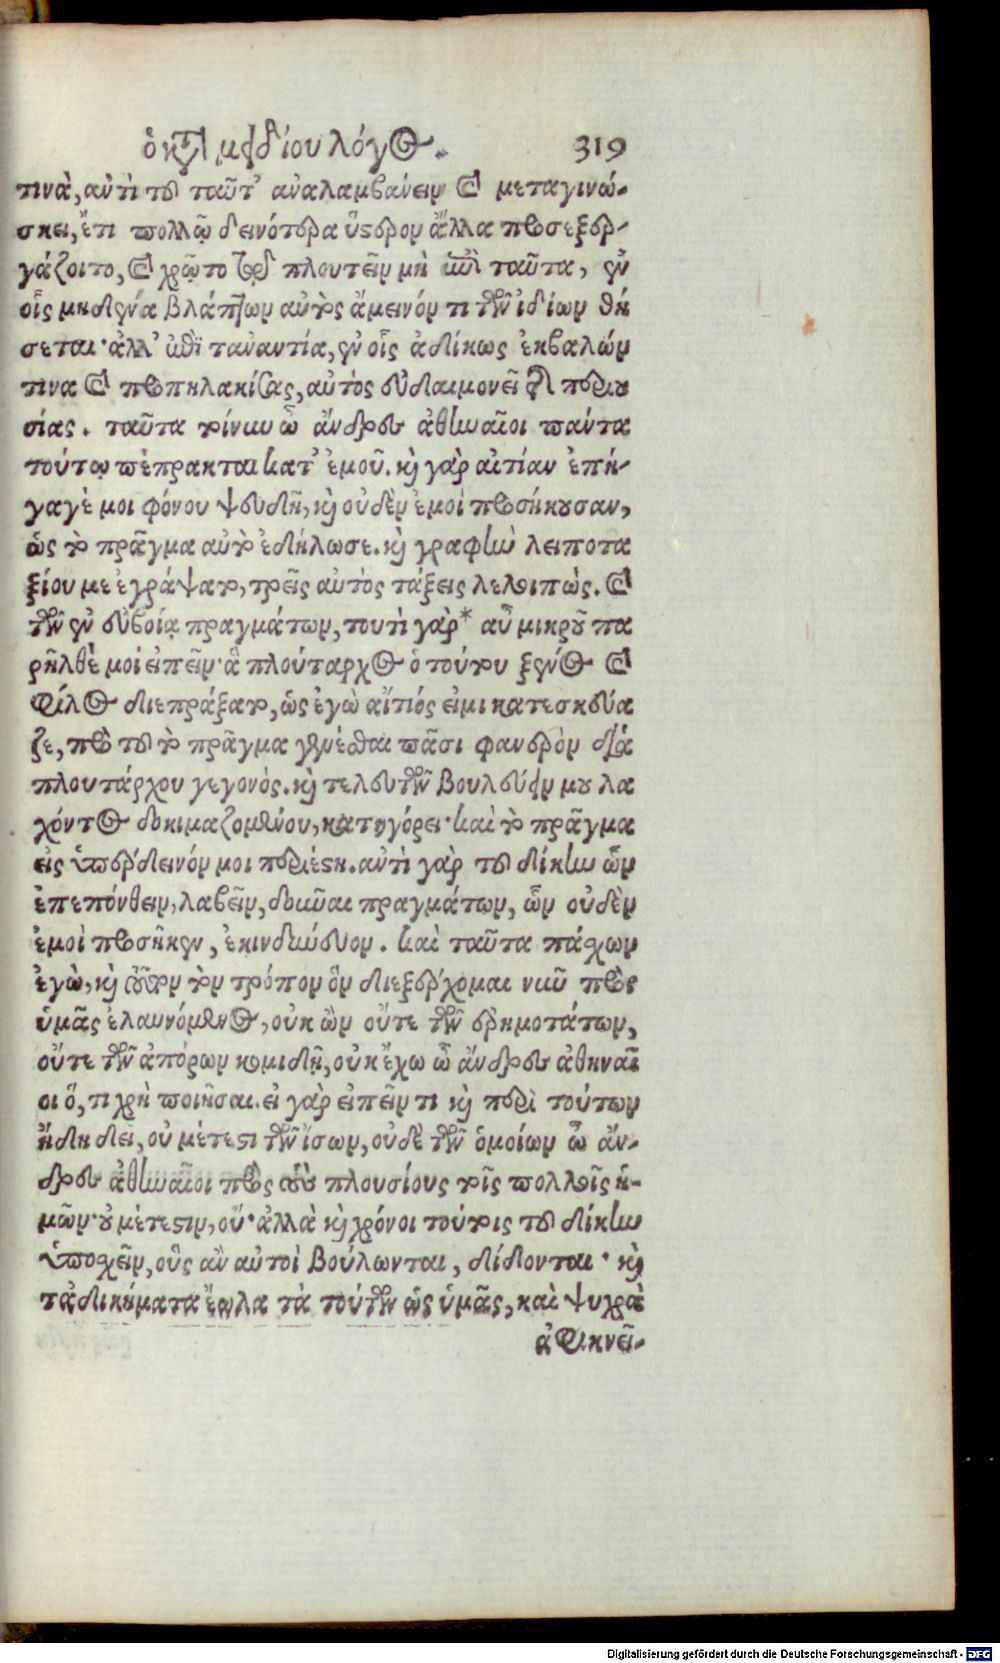 ὁ κτ͂ μειδίου λόγος. 319
τινὰ, αὐτὶ τοῦ ταῦτ' αὐαλαμβάνειν καὶ μεταγινώ-
σκει, ἔτι πολλῷ δεινότερα ὕστερον ἄλλα προσεξερ-
γάζοιτο, καὶ χρῷτο τῷ πλουτεῖν μὴ ἐπὶ ταῦτα, ἐν
οἷς μηδένα βλάπτων αὐτὸς ἄμεινόν τι τῶν ἰδίων θή
σεται· ἀλλ' ἐπὶ ταναντία, ἐν οἷς ἀδίκως ἐκβαλών
τινα καὶ προπηλακίσας, αὐτὸς εὐδαιμονεῖ τῆς περιου
σίας. ταῦτα τοίνυν ὦ ἄνδρες ἀθηναῖοι πάντα
τούτῳ πέπρακται κατ' ἐμοῦ. καὶ γὰρ αἰτίαν ἐπή-
γαγέ μοι φόνου ψευδῆ, καὶ οὐδὲν ἐμοὶ προσήκουσαν,
ὡς τὸ πρᾶγμα αὐτὸ ἐδήλωσε. καὶ γραφὴν λειποτα
ξίου με ἐγράψατο, τρεῖς αὐτὸς τάξεις λελοιπώς. καὶ
τῶν ἐν εὐβοίᾳ πραγμάτων, τουτὶ γὰρ* αὖ μικροῦ πα
ρῆλθέ μοι εἰπεῖν· ἃ πλούταρχος ὁ τούτου ξένος καὶ
φίλος διεπράξατο, ὡς ἐγὼ αἴτιός εἰμι κατεσκεύα
ζε, πρὸ τοῦ τὸ πρᾶγμα γενέσθαι πᾶσι φανερὸν διὰ
πλουτάρχου γεγονός. καὶ τελευτῶν βουλεύειν μου λα
χόντος δοκιμαζομένου, κατηγόρει· καὶ τὸ πρᾶγμα
εἰς ὑπέρδεινόν μοι περιέστη. αὐτὶ γὰρ τοῦ δίκην ὧν
ἐπεπόνθειν, λαβεῖν, δοῦναι πραγμάτων, ὧν οὐδὲν
ἐμοὶ προσῆκεν, ἐκινδύνευον. καὶ ταῦτα πάσχων
ἐγὼ, καὶ τοῦτον τὸν τρόπον ὃν διεξέρχομαι νῦν πρὸς
ὑμᾶς ἐλαυνόμενος, οὐκ ὢν οὔτε τῶν ἐρημοτάτων,
οὔτε τῶν ἀπόρων κομιδῇ, οὐκ ἔχω ὦ ἄνδρες ἀθηναῖ
οι ὅ, τι χρὴ ποιῆσαι. εἰ γὰρ εἰπεῖν τι καὶ περὶ τούτων
ἤδη δεῖ, οὐ μέτεστι τῶν ἴσων, οὐδὲ τῶν ὁμοίων ὦ ἄν-
δρες ἀθηναῖοι πρὸς τοὺς πλουσίους τοῖς πολλοῖς ἡ-
μῶν· οὐ μέτεστιν, οὔ· ἀλλὰ καὶ χρόνοι τούτοις τοῦ δίκην
ὑποσχεῖν, οὓς ἂν αὐτοὶ βούλωνται, δίδονται· καὶ
τἀδικήματα ἕωλα τὰ τούτων ὡς ὑμᾶς, καὶ ψυχρὰ
ἀφικνεῖ-
Digitalisierung gefördert durch die Deutsche Forschungsgemeinschaft - DFG